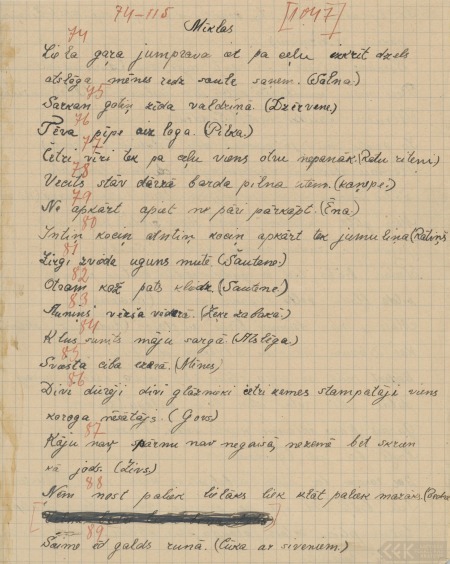 74-115
[1047]
Mīklas
74
Liela gaŗa jumprava iet pa ceļu izkrīt dzels
atslēga mēnes redz saule saņem. (Salna)
75
Sarkan gotiņ zīda valdziņā. (Dzērvene)
76
Tēva pīpe aiz loga. (Pilka)
77
Četri vīri tek pa ceļu viens otru nepanāk. (Ratu riteņ)
78
Vecīts stāv dārzā barda pilna utem. (kaņepe.)
79
Ne apkārt apiet ne pāri pārkāpt. (Ēna)
80
kociņ kociņ apkārt tek jumuliņa (Ratiņš
81
Zirgs zviedz uguns mutē. (Šautene)
82
Otram kož pats kliedz. (Šautene)
83
vērša vēderā. (zābakā)
84
Kluss sunīts māju sargā. (Atslēga)
85
Svešta ciba ezerā. (Mēnes)
86
Divi dūrēji divi glāznieki četri zemes stampatāji viens
karoga nēsātājs. (Govs)
87
Kāju nav spārnu nav negaisā, nezemē bet skrien
kā jods. (Zivs)
88
Ņem nost paliek lielāks liek klāt paliek mazāks.
89
Saime ēd galds runā. (Cūka ar siveniem.)